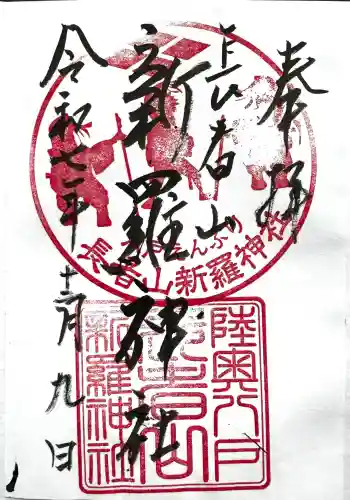 奉拝
長者山
新羅神社
令和七年十二月九日
えんぶり
長者山新羅神社
陸奥八戸
長者山
新羅神社